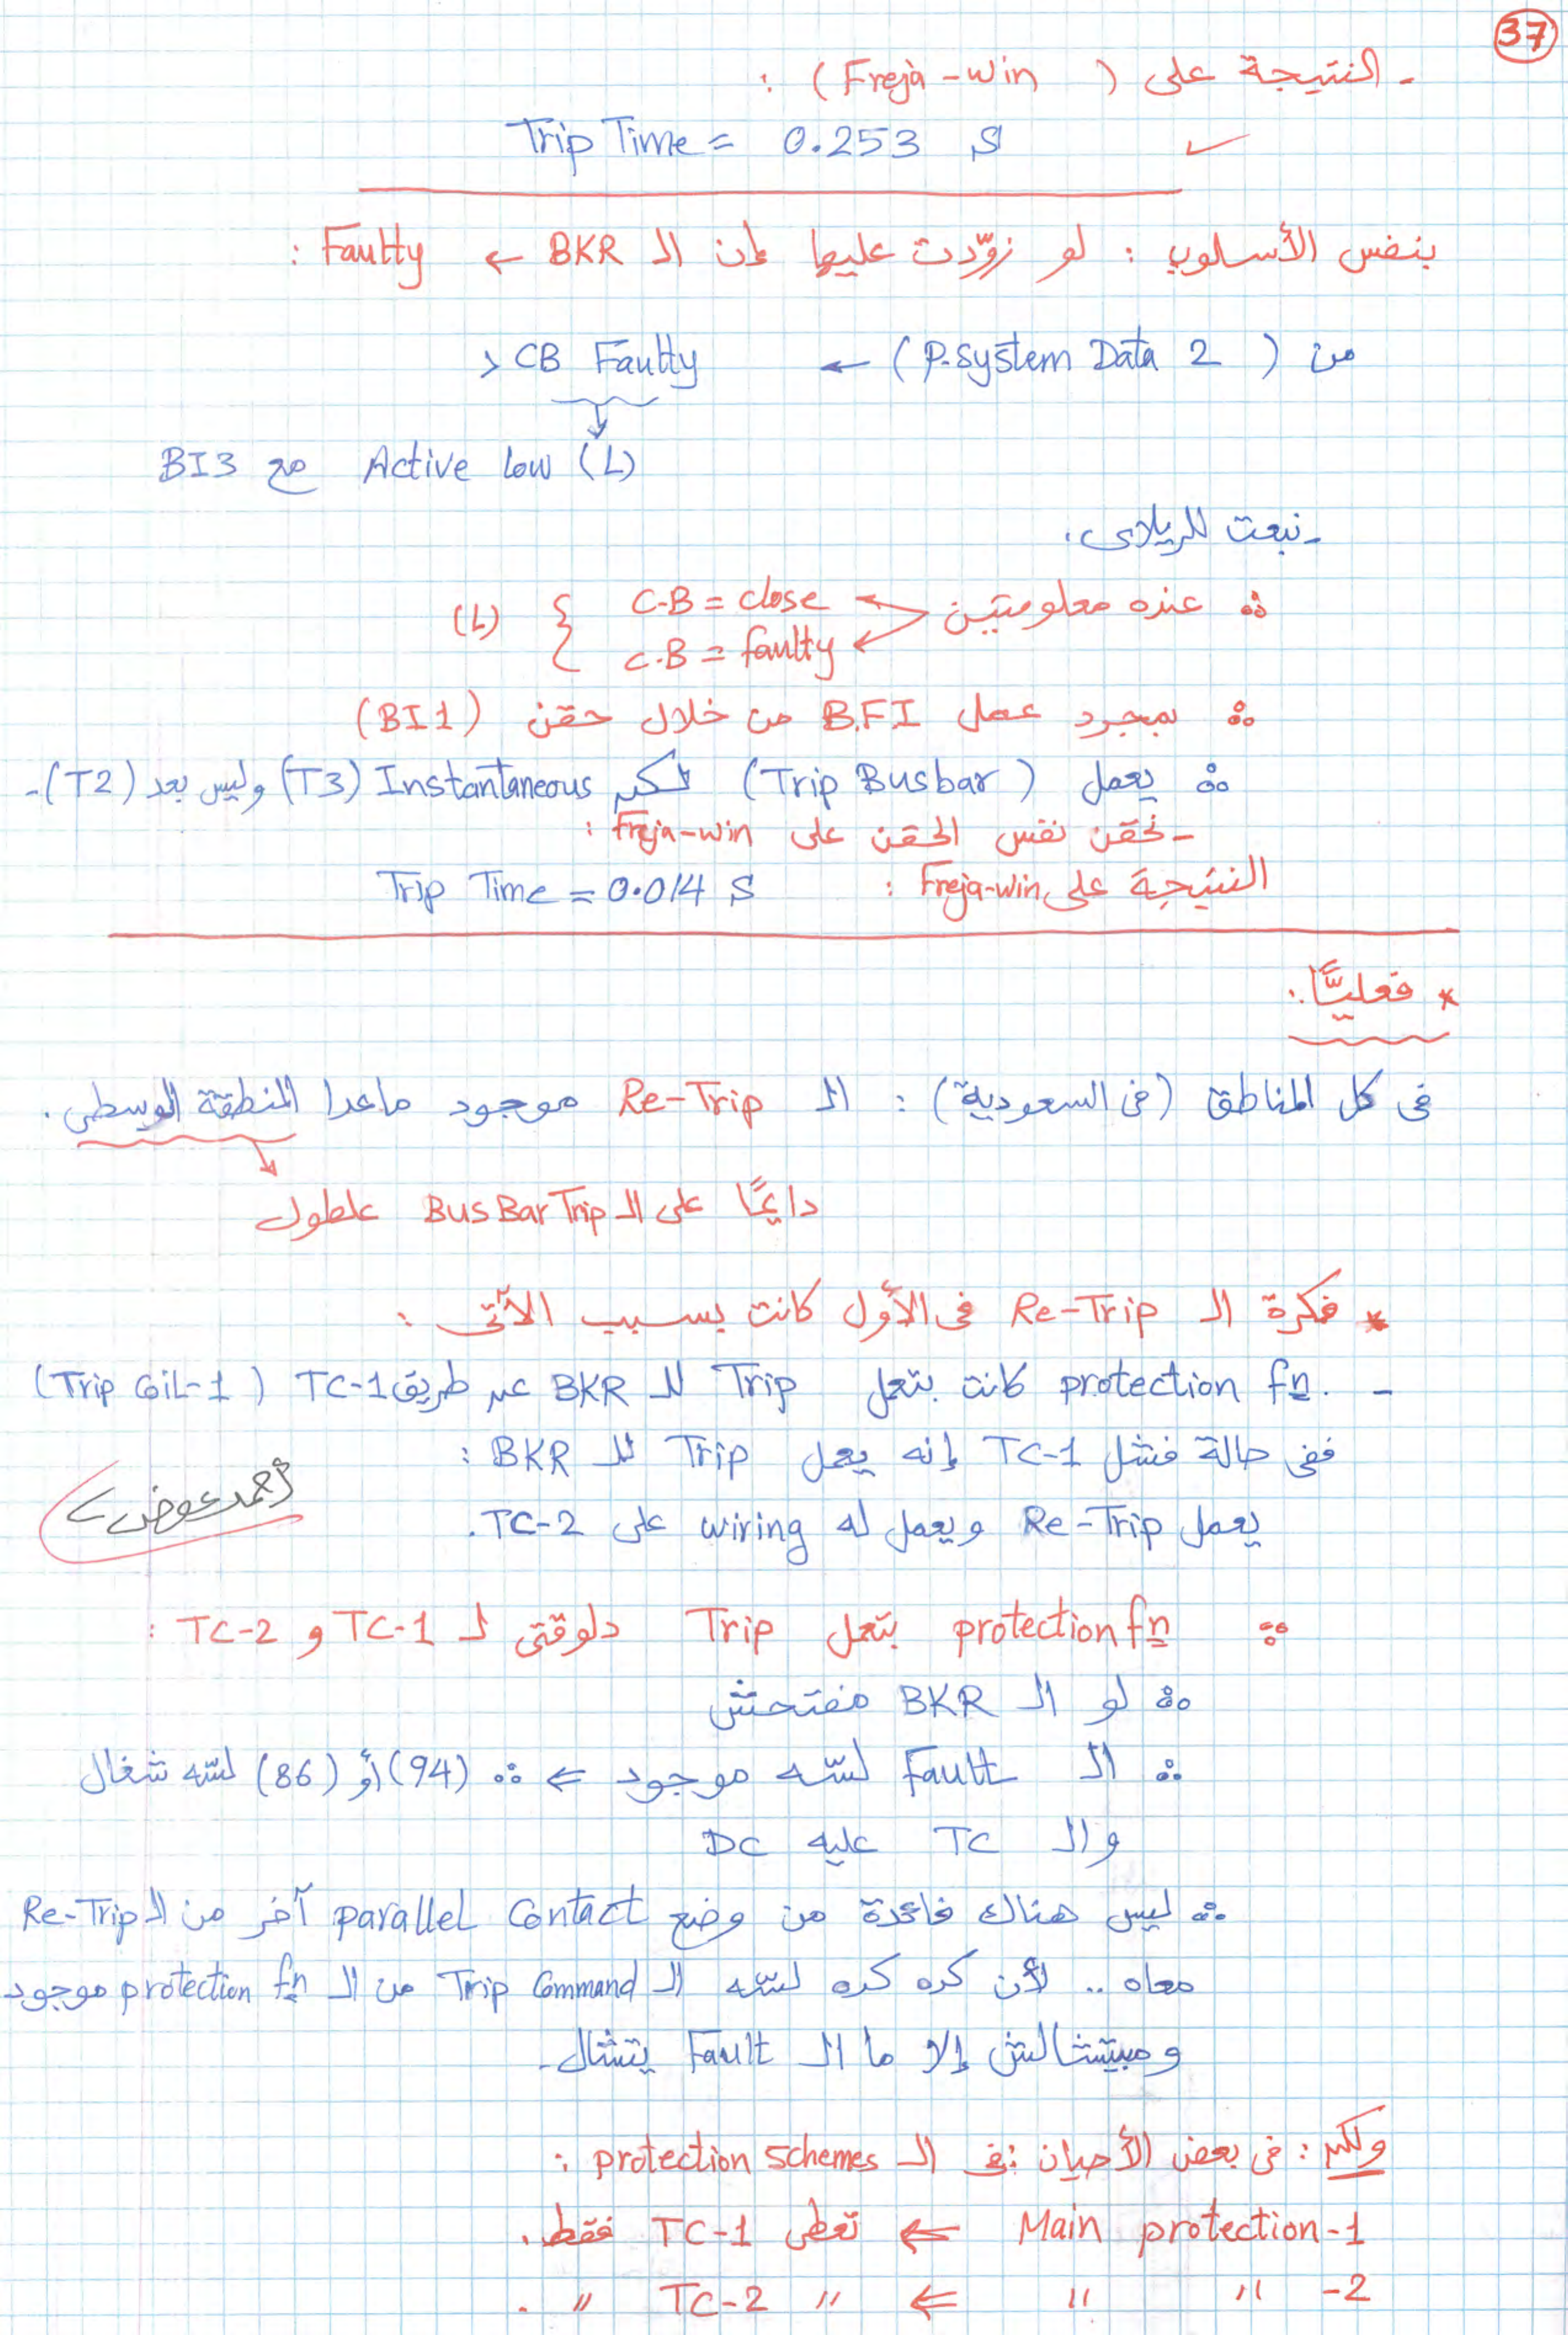 37
- النتيجة على ( Freja-win ) :
Trip Time = 0.253 S ✓
بنفس الأسلوب : لو زوّدت عليها إن الـ BKR ← Faulty :
من ( P.system Data 2 ) ← > CB Faulty
BI3 مع Active low (L)
- نبعت للريلاى.
∴ عنده معلومتين { C.B = close
C.B = faulty } (L)
∴ بمجرد عمل B.FI من خلال حقن (BI1)
∴ يعمل ( Trip Busbar ) لكن Instantaneous (T3) وليس بعد (T2) -
- نحقن نفس الحقن على Freja-win :
النتيجة على Freja-win : Trip Time = 0.014 S
* فعليًّا :
فى كل المناطق (فى السعودية) : الـ Re-Trip موجود ماعدا المنطقة الوسطى .
دايمًا على الـ BusBar Trip علطول
* فكرة الـ Re-Trip فى الأول كانت بسبب الآتى :
- protection fn. كانت بتعمل Trip للـ BKR عن طريق TC-1 ( Trip Coil-1 )
ففى حالة فشل TC-1 إنه يعمل Trip للـ BKR :
يعمل Re-Trip ويعمل له wiring على TC-2 .
أحمد عوض
∴ protection fn بتعمل Trip دلوقتى لـ TC-1 و TC-2 :
∴ لو الـ BKR مفتحش
∴ الـ Fault لسّه موجود ⇐ ∴ (94) أو (86) لسّه شغال
والـ TC عليه DC
∴ ليس هناك فائدة من وضع parallel Contact آخر من الـ Re-Trip
معاه .. لأن كده كده لسّه الـ Trip Command من الـ protection fn موجود
ومبيتشالش إلا ما الـ Fault يتشال -
ولكن : فى بعض الأحيان : فى الـ protection schemes :
Main protection-1 ⇐ تعطى TC-1 فقط .
〃 〃 -2 ⇐ 〃 TC-2 〃 .